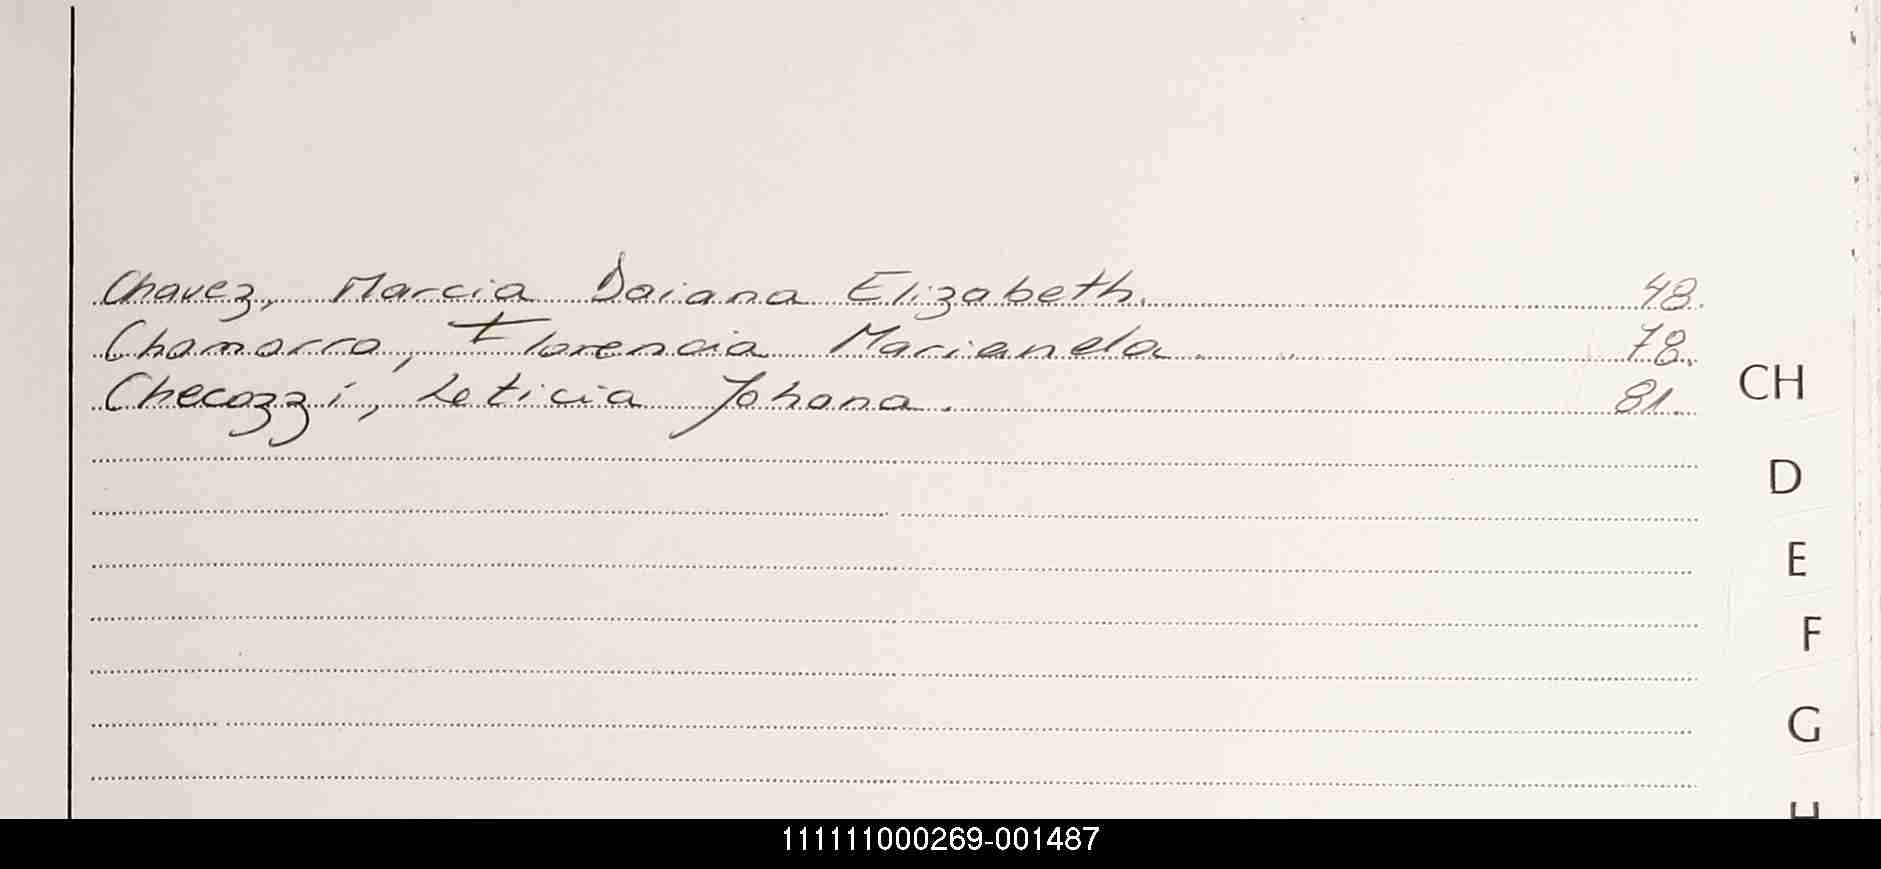 Chavez, Marcia Daiana Elizabeth. 48.
Chamorro, Florencia Marianela. 78.
Checozzi, Leticia Johana. 81.
CH
D
E
F
G
H
111111000269-001487